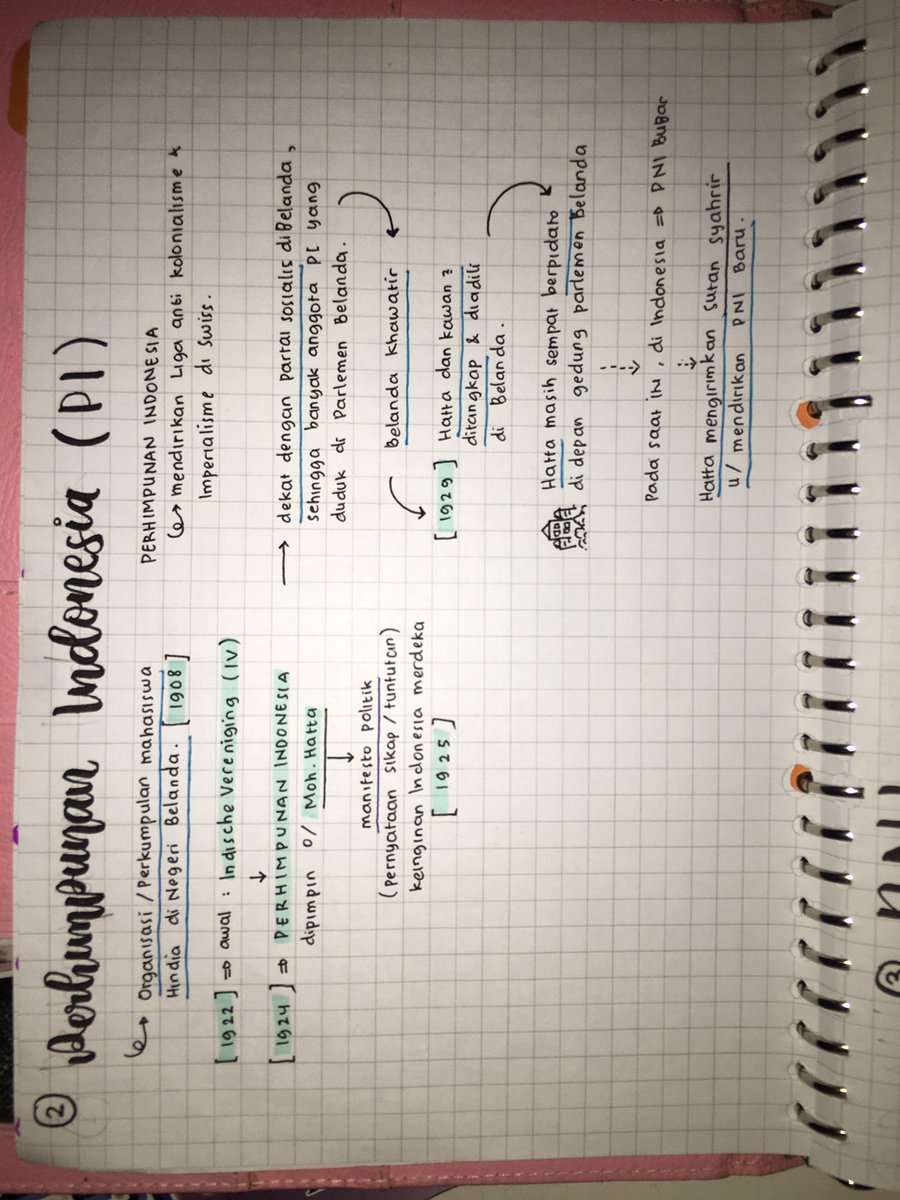 2 Perhimpunan Indonesia (PI)
↳ Organisasi/Perkumpulan mahasiswa
Hindia di Negeri Belanda. [1908]
[1922] ⇒ awal : Indische Vereniging (IV)
↓
[1924] ⇒ PERHIMPUNAN INDONESIA
dipimpin o/ Moh. Hatta
↓
manifesto politik
(Pernyataan sikap/tuntutan)
keinginan Indonesia merdeka
[1925]
PERHIMPUNAN INDONESIA
↳ mendirikan Liga anti kolonialisme &
Imperialisme di Swiss.
→ dekat dengan partai sosialis di Belanda,
sehingga banyak anggota PI yang
duduk di Parlemen Belanda.
Belanda khawatir
[1929] Hatta dan kawan2
ditangkap & diadili
di Belanda.
Hatta masih sempat berpidato
di depan gedung parlemen Belanda
Pada saat ini, di Indonesia ⇒ PNI BuBar
Hatta mengirimkan Sutan Syahrir
u/ mendirikan PNI Baru.
3